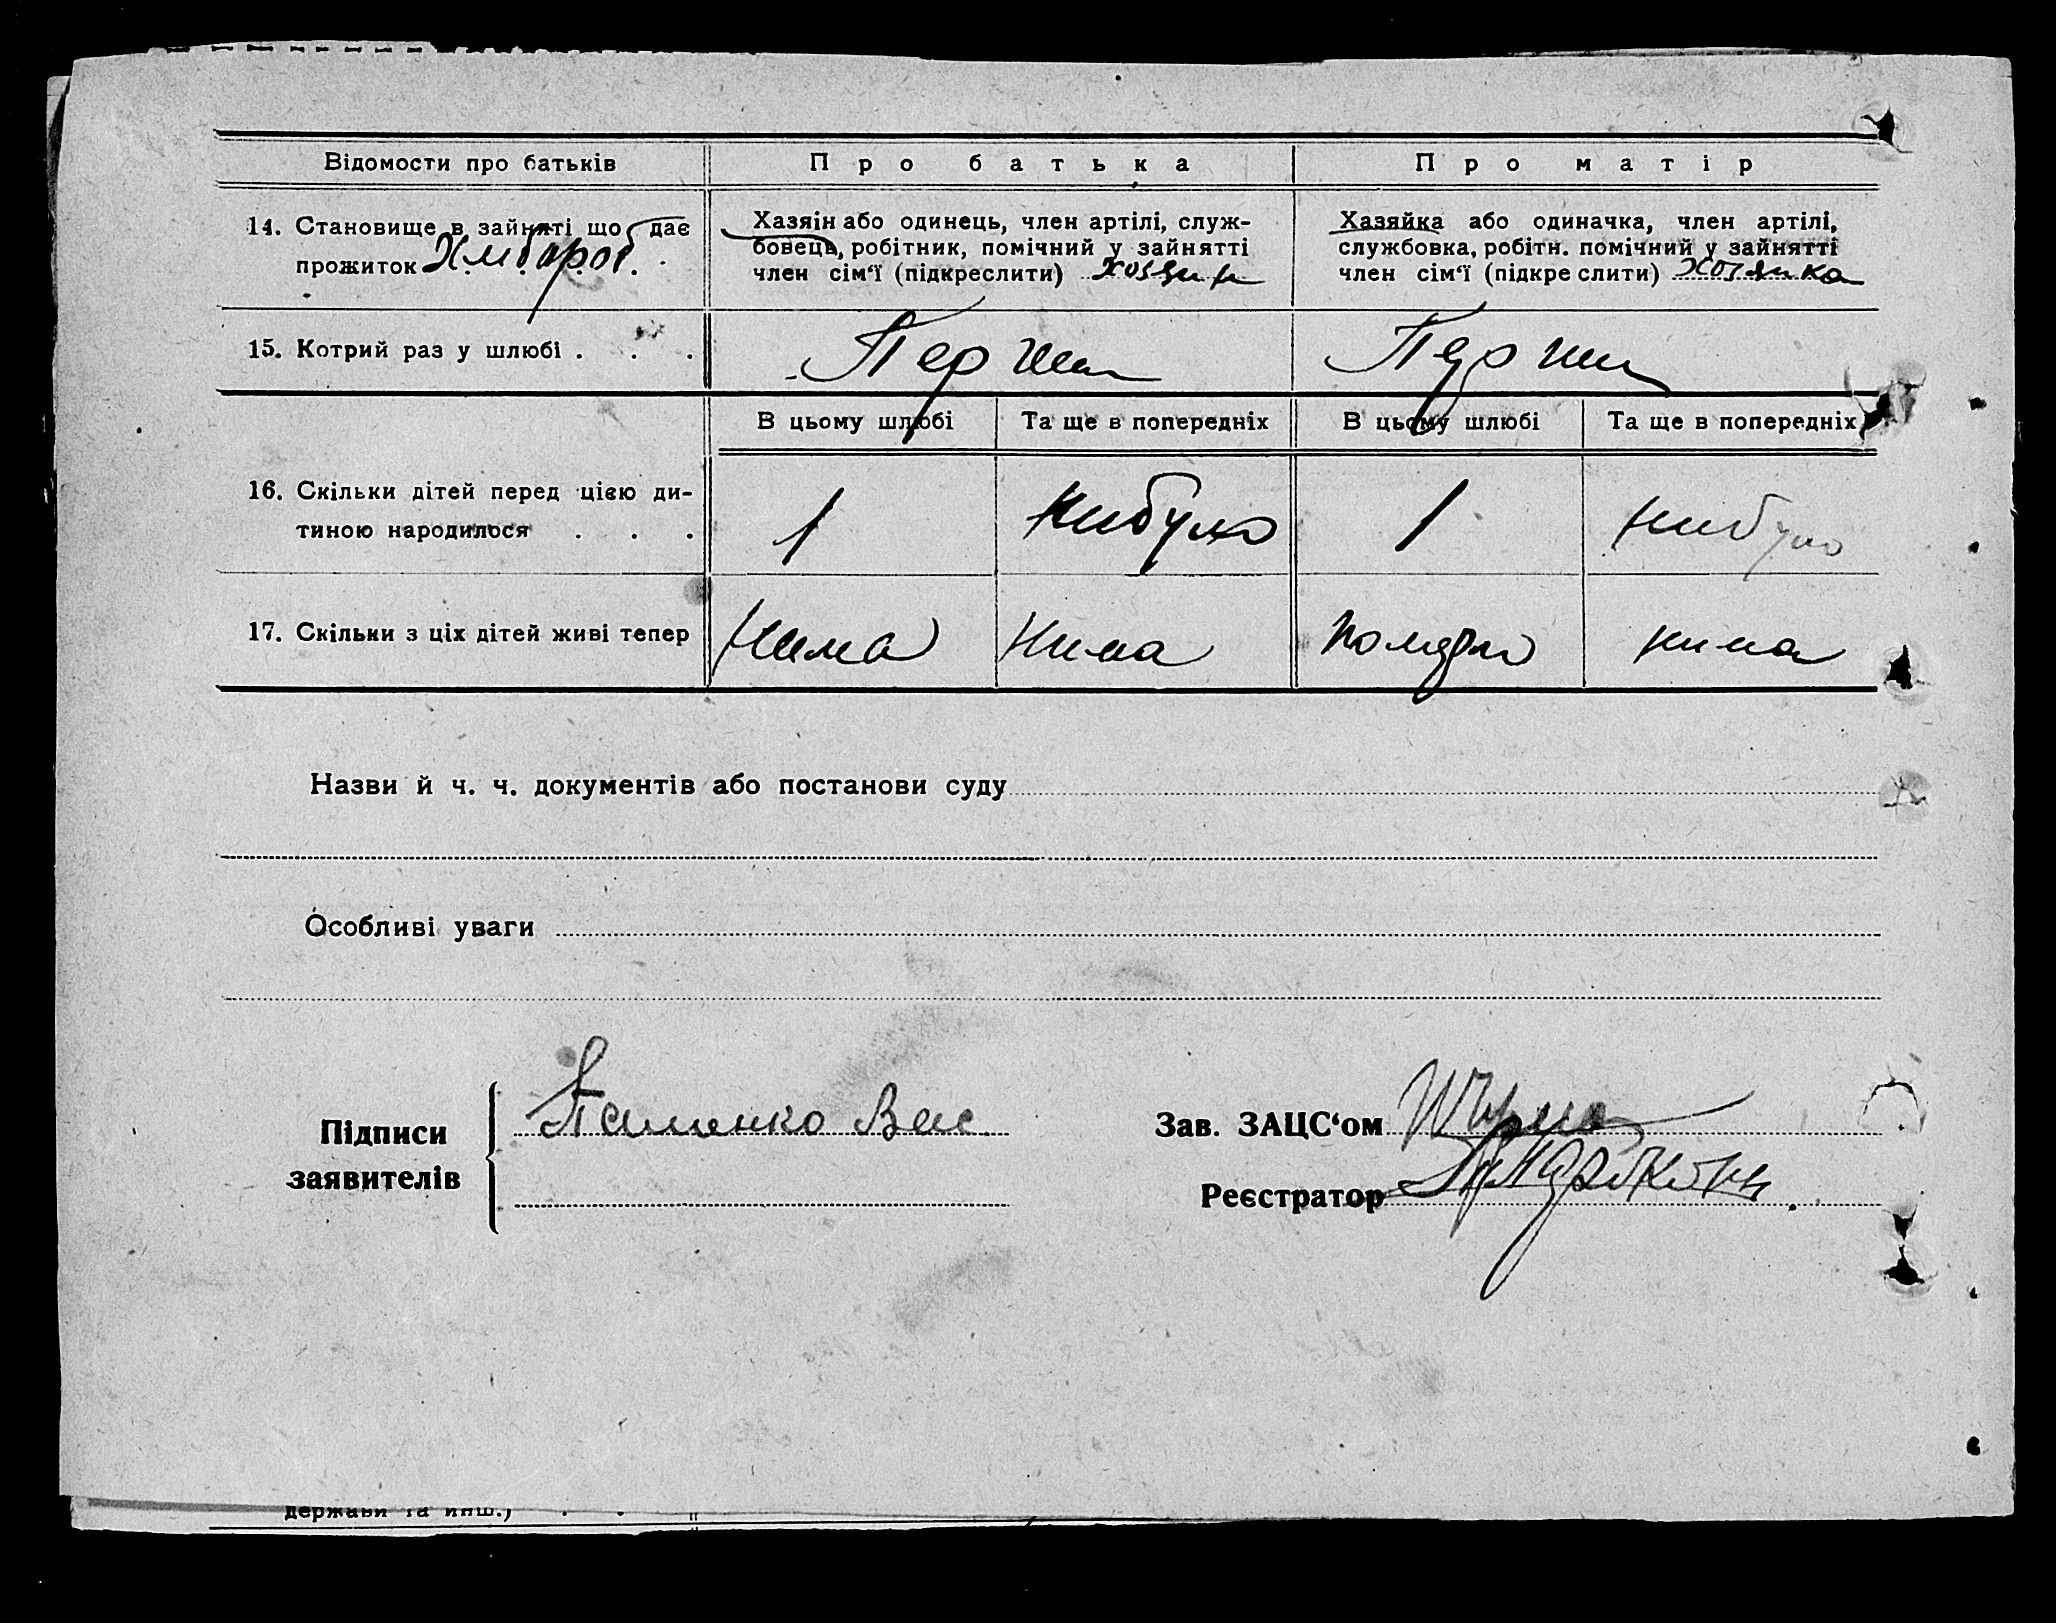 Відомости про батьків
Про батька
Про матір
14. Становище в зайнятті що дає
прожиток Хліборов.
Хазяїн або одинець, член артілі, служ-
бовець, робітник, помічний у зайнятті
член сім'ї (підкреслити) хозяин
Хазяйка або одиначка, член артілі,
службовка, робітн. помічний у зайнятті
член сім'ї (підкреслити) хозяика
15. Котрий раз у шлюбі . . .
Перши
Перши
В цьому шлюбі
Та ще в попередніх
В цьому шлюбі
Та ще в попередніх
16. Скільки дітей перед цією ди-
тиною народилося . . .
1
нибуло
1
нибуло
17. Скільки з ціх дітей живі тепер
Нима
Нима
померло
нима
Назви й ч. ч. документів або постанови суду
Особливі уваги
Підписи
заявителів
Вас
Зав. ЗАЦС'ом
Реєстратор
держави та инш.) . .